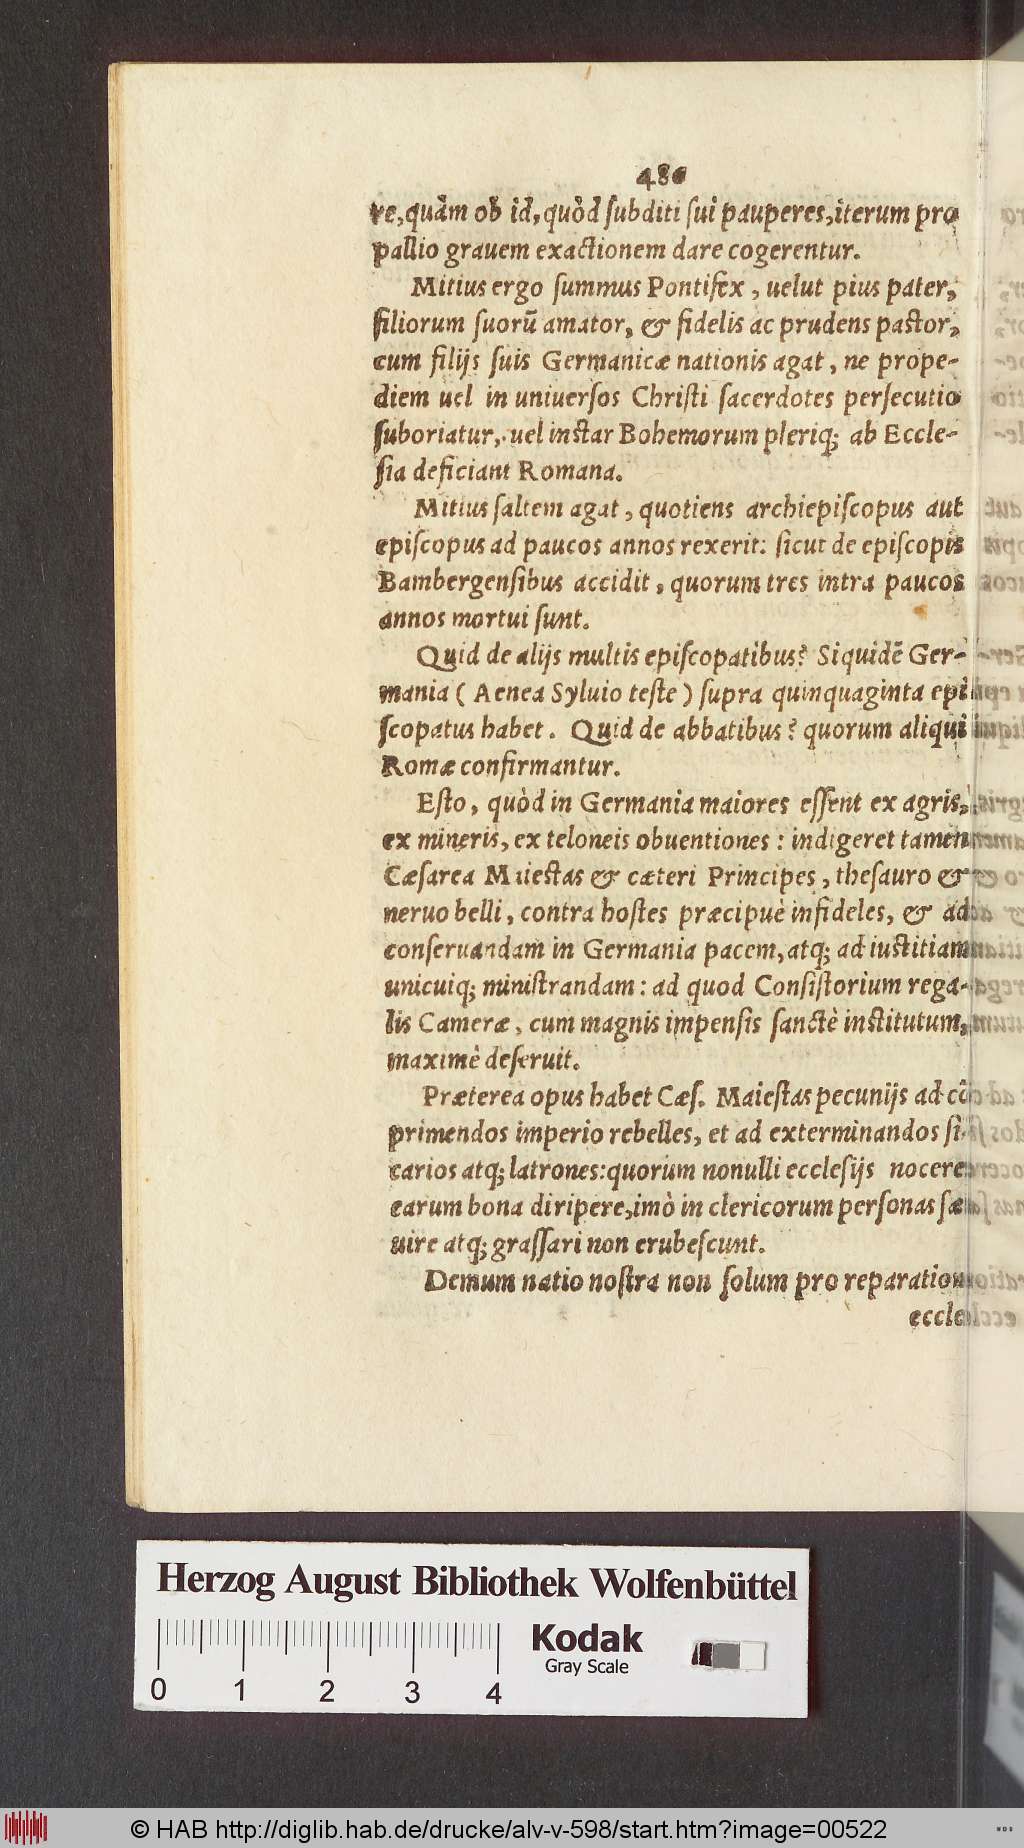 486
re, quàm ob id, quòd ſubditi ſui pauperes, iterum pro
pallio grauem exactionem dare cogerentur.
Mitius ergo ſummus Pontifex, uelut pius pater,
filiorum ſuorū amator, & fidelis ac prudens paſtor,
cum filijs ſuis Germanicæ nationis agat, ne prope-
diem uel in uniuerſos Chriſti ſacerdotes perſecutio
ſuboriatur, uel inſtar Bohemorum pleriq; ab Eccle-
ſia deficiant Romana.
Mitius ſaltem agat, quotiens archiepiſcopus aut
epiſcopus ad paucos annos rexerit: ſicut de epiſcopis
Bambergenſibus accidit, quorum tres intra paucos
annos mortui ſunt.
Quid de alijs multis epiſcopatibus? Siquidē Ger-
mania ( Aenea Syluio teſte ) ſupra quinquaginta epi
ſcopatus habet. Quid de abbatibus? quorum aliqui
Romæ confirmantur.
Eſto, quòd in Germania maiores eſſent ex agris,
ex mineris, ex teloneis obuentiones: indigeret tamen
Cæſarea Maieſtas & cæteri Principes, theſauro &
neruo belli, contra hoſtes præcipuè infideles, & ad
conſeruandam in Germania pacem, atq; ad iuſtitiam
unicuiq; miniſtrandam: ad quod Conſiſtorium rega-
lis Cameræ, cum magnis impenſis ſanctè inſtitutum,
maximè deſeruit.
Præterea opus habet Cæſ. Maieſtas pecunijs ad cō
primendos imperio rebelles, et ad exterminandos ſi-
carios atq; latrones: quorum nonulli eccleſijs nocere
earum bona diripere, imò in clericorum perſonas ſæ
uire atq; graſſari non erubeſcunt.
Demum natio noſtra non ſolum pro reparation
eccle
Herzog August Bibliothek Wolfenbüttel
Kodak
Gray Scale
0 1 2 3 4
© HAB http://diglib.hab.de/drucke/alv-v-598/start.htm?image=00522